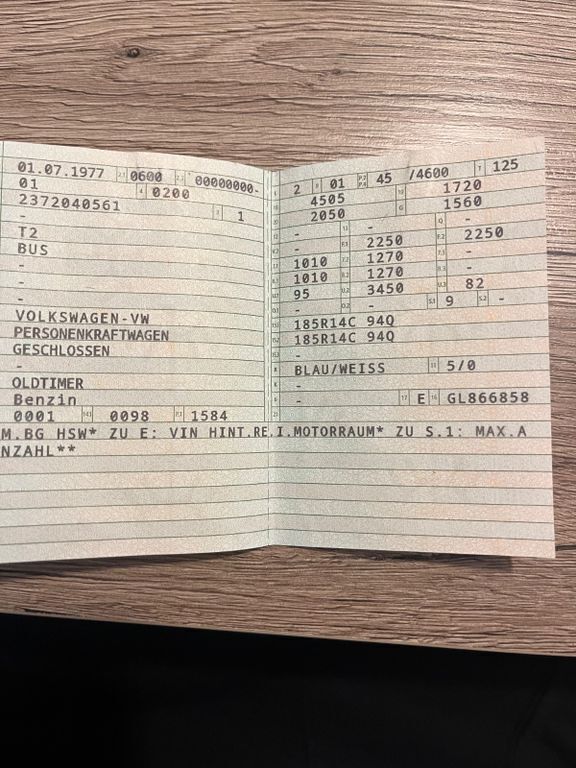 01.07.1977 0600 00000000-
01 0200
2372040561 1
-
T2
BUS
-
-
-
VOLKSWAGEN-VW
PERSONENKRAFTWAGEN
GESCHLOSSEN
-
OLDTIMER
Benzin
0001 0098 1584
2 01 45 /4600 125
4505 1720
2050 1560
- - -
- 2250 2250
1010 1270 -
1010 1270 -
95 3450 82
- - 9 -
185R14C 94Q
185R14C 94Q
-
BLAU/WEISS 5/0
-
- E GL866858
M.BG HSW* ZU E: VIN HINT.RE.I.MOTORRAUM* ZU S.1: MAX.A
NZAHL**